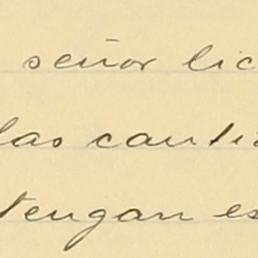 señor lic
las canti
tengan es